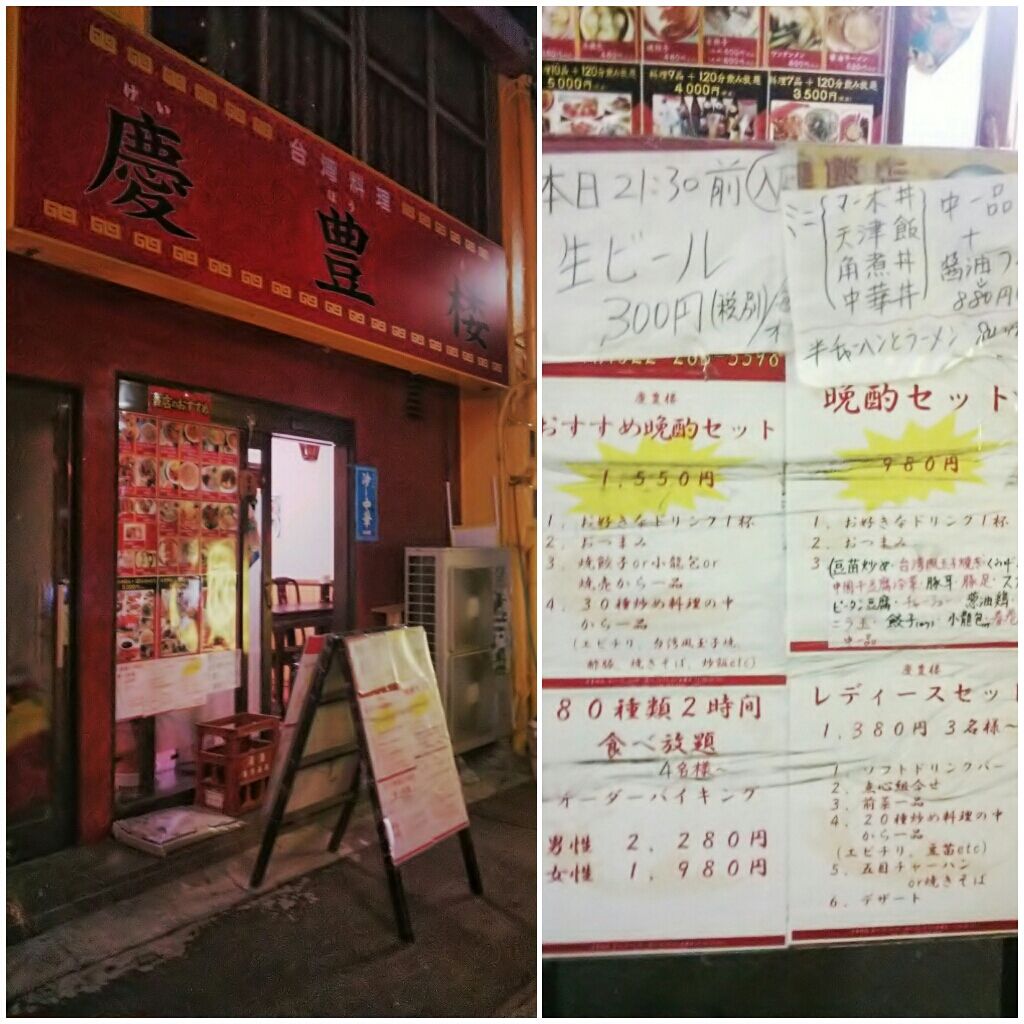 けい
慶
台湾料理
ほう
豊
楼
当店のおすすめ
冷し中華
料理10品+120分飲み放題
5000円
料理9品+120分飲み放題
4000円
料理7品+120分飲み放題
3,500円
本日21:30前入
生ビール
300円(税別)
ミニ
マーボ丼
天津飯
角煮丼
中華丼
中一品
+
醤油ラ
880円
半チャーハンとラーメン
慶豊楼
おすすめ晩酌セット
1,550円
1、お好きなドリンク1杯
2、おつまみ
3、焼餃子or小籠包or
焼売から一品
4、30種炒め料理の中
から一品
(エビチリ、台湾風玉子焼、
酢豚、焼きそば、炒飯etc)
晩酌セット
980円
1、お好きなドリンク1杯
2、おつまみ
3、(豆苗炒め・台湾風玉子焼き・
中国干豆腐冷菜・豚耳・豚足・
ピータン豆腐・チャーシュー・葱油鶏・
ニラ玉・餃子・小籠包・春巻
中一品
80種類2時間
食べ放題
4名様~
オーダーバイキング
男性 2,280円
女性 1,980円
慶豊楼
レディースセット
1,380円 3名様~
1、ソフトドリンクバー
2、点心組合せ
3、前菜一品
4、20種炒め料理の中
から一品
(エビチリ、豆苗etc)
5、五目チャーハン
or焼きそば
6、デザート